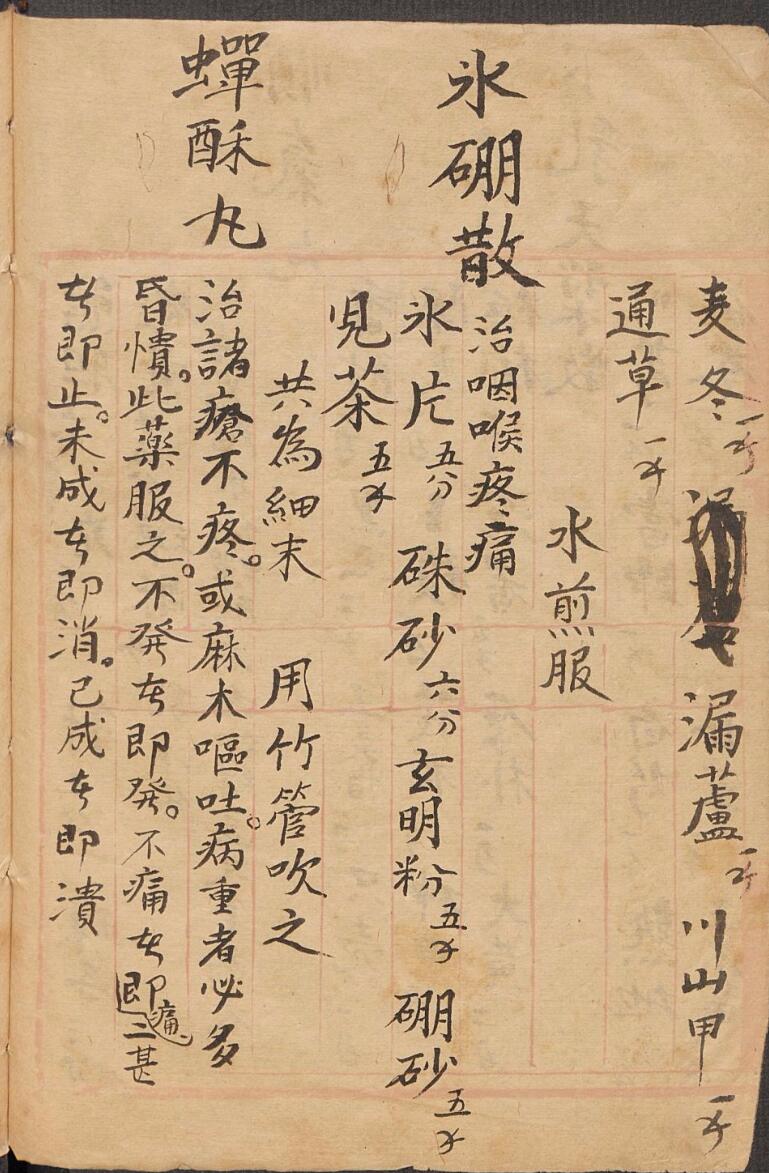 麦冬一钱 漏蘆一钱 川山甲一钱
通草一钱
水煎服
氷硼散
治咽喉疼痛
氷片五分 硃砂六分 玄明粉五钱 硼砂五钱
児茶五钱
共為細末 用竹管吹之
蟬酥丸
治諸瘡不疼。或麻木嘔吐。病重者必多
昏憒。此藥服之。不發者即發。不痛者即痛二甚
者即止。未成者即消。已成者即潰